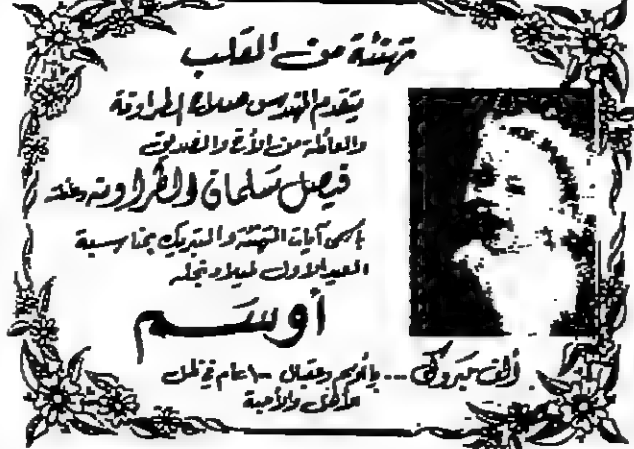 تهنئة من القلب
يتقدم المهندس صلاح الطراونة
والعائلة من الأخ والصديق
فيصل سلمان الطراونه وعائلته
بأسمى آيات التهنئة والتبريك بمناسبة
العيد الاول لميلاد نجله
أوسم
ألف مبروك ... يا أوسم وعقبال ١٠٠ عام في ظل
الأهل والأحبة